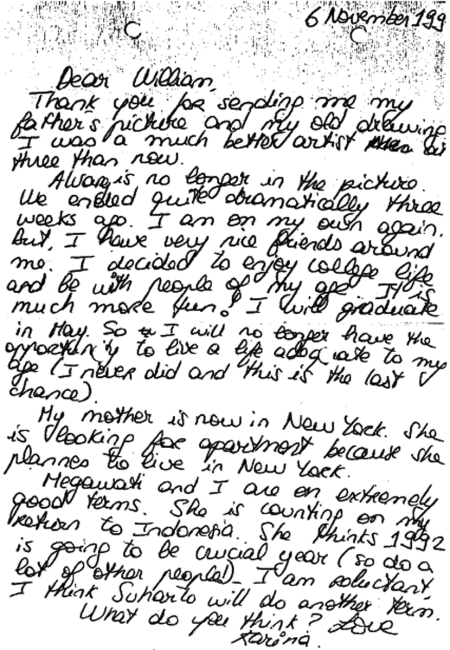 6 November 199
Dear William,
Thank you for sending me my
father's picture and my old drawing
I was a much better artist at
three than now.
is no longer in the picture.
We ended quite dramatically three
weeks ago. I am on my own again.
But, I have very nice friends around
me. I decided to enjoy college life
and be with people of my age. It is
much more fun. I will graduate
in May. So I will no longer have the
opportunity to live a life adequate to my
age (I never did and this is the last
chance).
My mother is now in New York. She
is looking for apartment because she
plannes to live in New York.
Megawati and I are on extremely
good terms. She is counting on my
return to Indonesia. She thinks 1992
is going to be crucial year (so do a
lot of other people!)_ I am reluctant,
I think Suharto will do another term.
What do you think? Love
Karina.